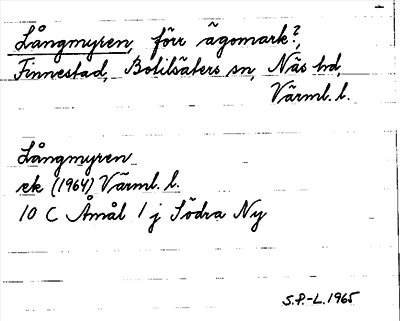 Långmyren, förr ägomark?,
Finnestad, Botilsäters sn, Näs hd,
Värml. l.
Långmyren
ek (1964) Värml. l.
10 C Åmål 1 j Södra Ny
S.P.-L. 1965